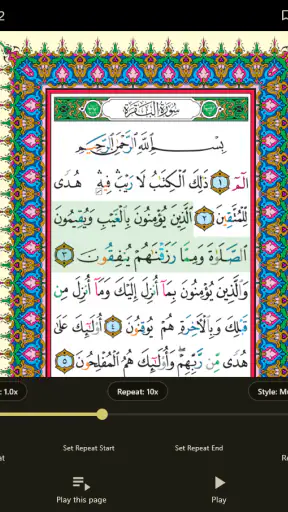 2
سُورَةُ البَقَرَةِ
بِسْمِ اللَّهِ الرَّحْمَٰنِ الرَّحِيمِ
الٓمٓ ۝١ ذَٰلِكَ الْكِتَٰبُ لَا رَيْبَ فِيهِ هُدًى
لِّلْمُتَّقِينَ ۝٢ الَّذِينَ يُؤْمِنُونَ بِالْغَيْبِ وَيُقِيمُونَ
الصَّلَوٰةَ وَمِمَّا رَزَقْنَٰهُمْ يُنفِقُونَ ۝٣
وَالَّذِينَ يُؤْمِنُونَ بِمَآ أُنزِلَ إِلَيْكَ وَمَآ أُنزِلَ مِن
قَبْلِكَ وَبِالْأَخِرَةِ هُمْ يُوقِنُونَ ۝٤ أُوْلَٰٓئِكَ عَلَىٰ
هُدًى مِّن رَّبِّهِمْ وَأُوْلَٰٓئِكَ هُمُ الْمُفْلِحُونَ ۝٥
: 1.0x Repeat: 10x Style: Mu
Set Repeat Start Set Repeat End
at Re
Play this page Play